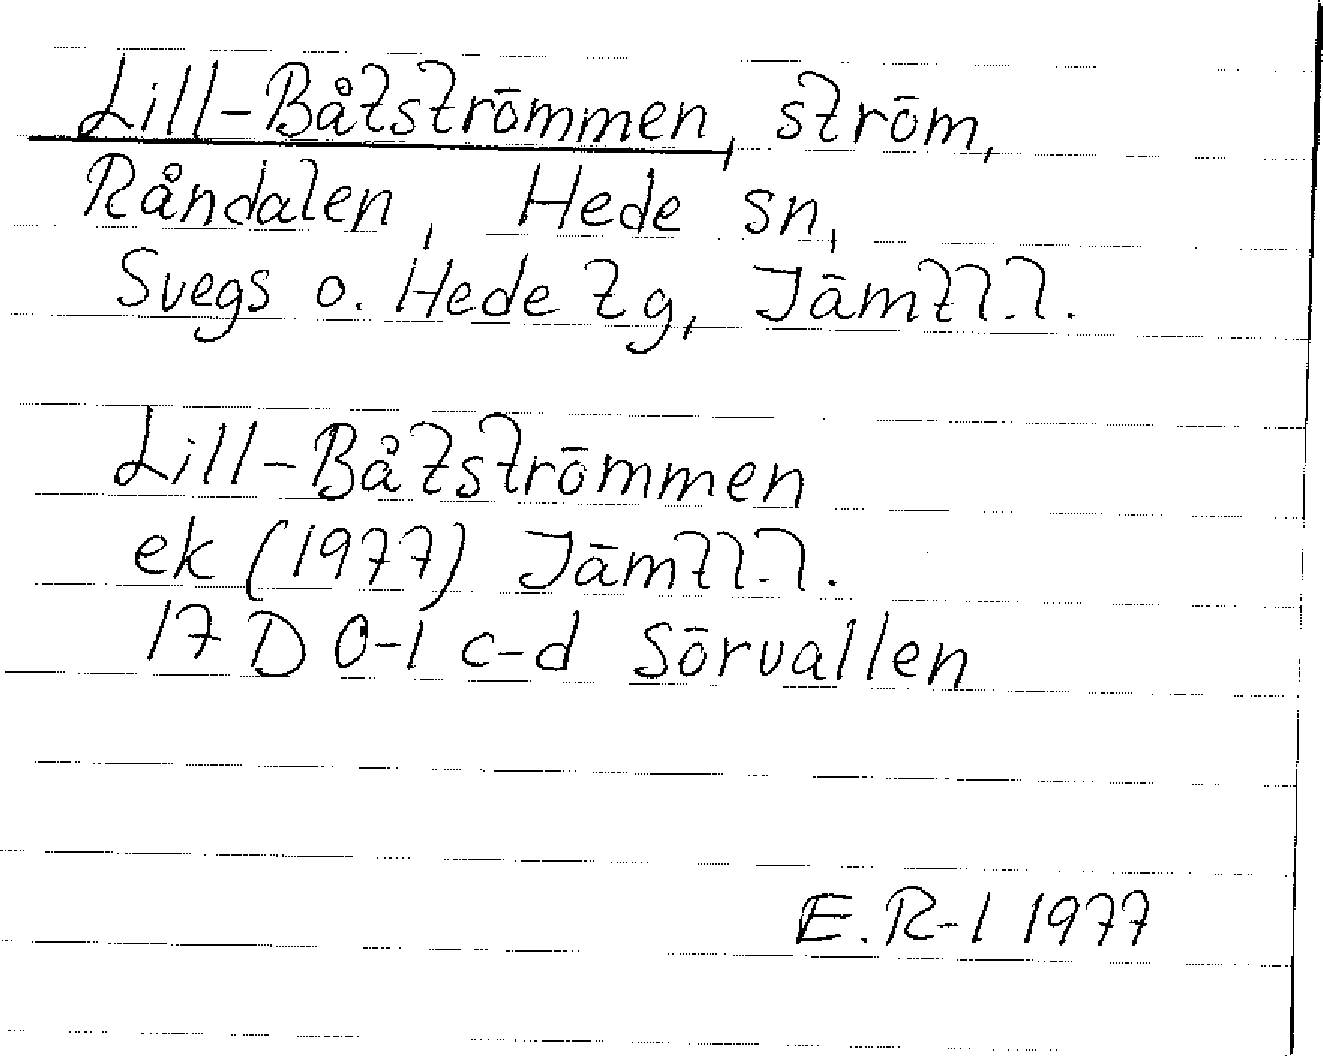 Lill-Båtströmmen, ström,
Råndalen, Hede sn,
Svegs o. Hede tg, Jämtl.l.
Lill-Båtströmmen
ek (1977) Jämtl.l.
17 D 0-1 c-d Sörvallen
E.R-l 1977